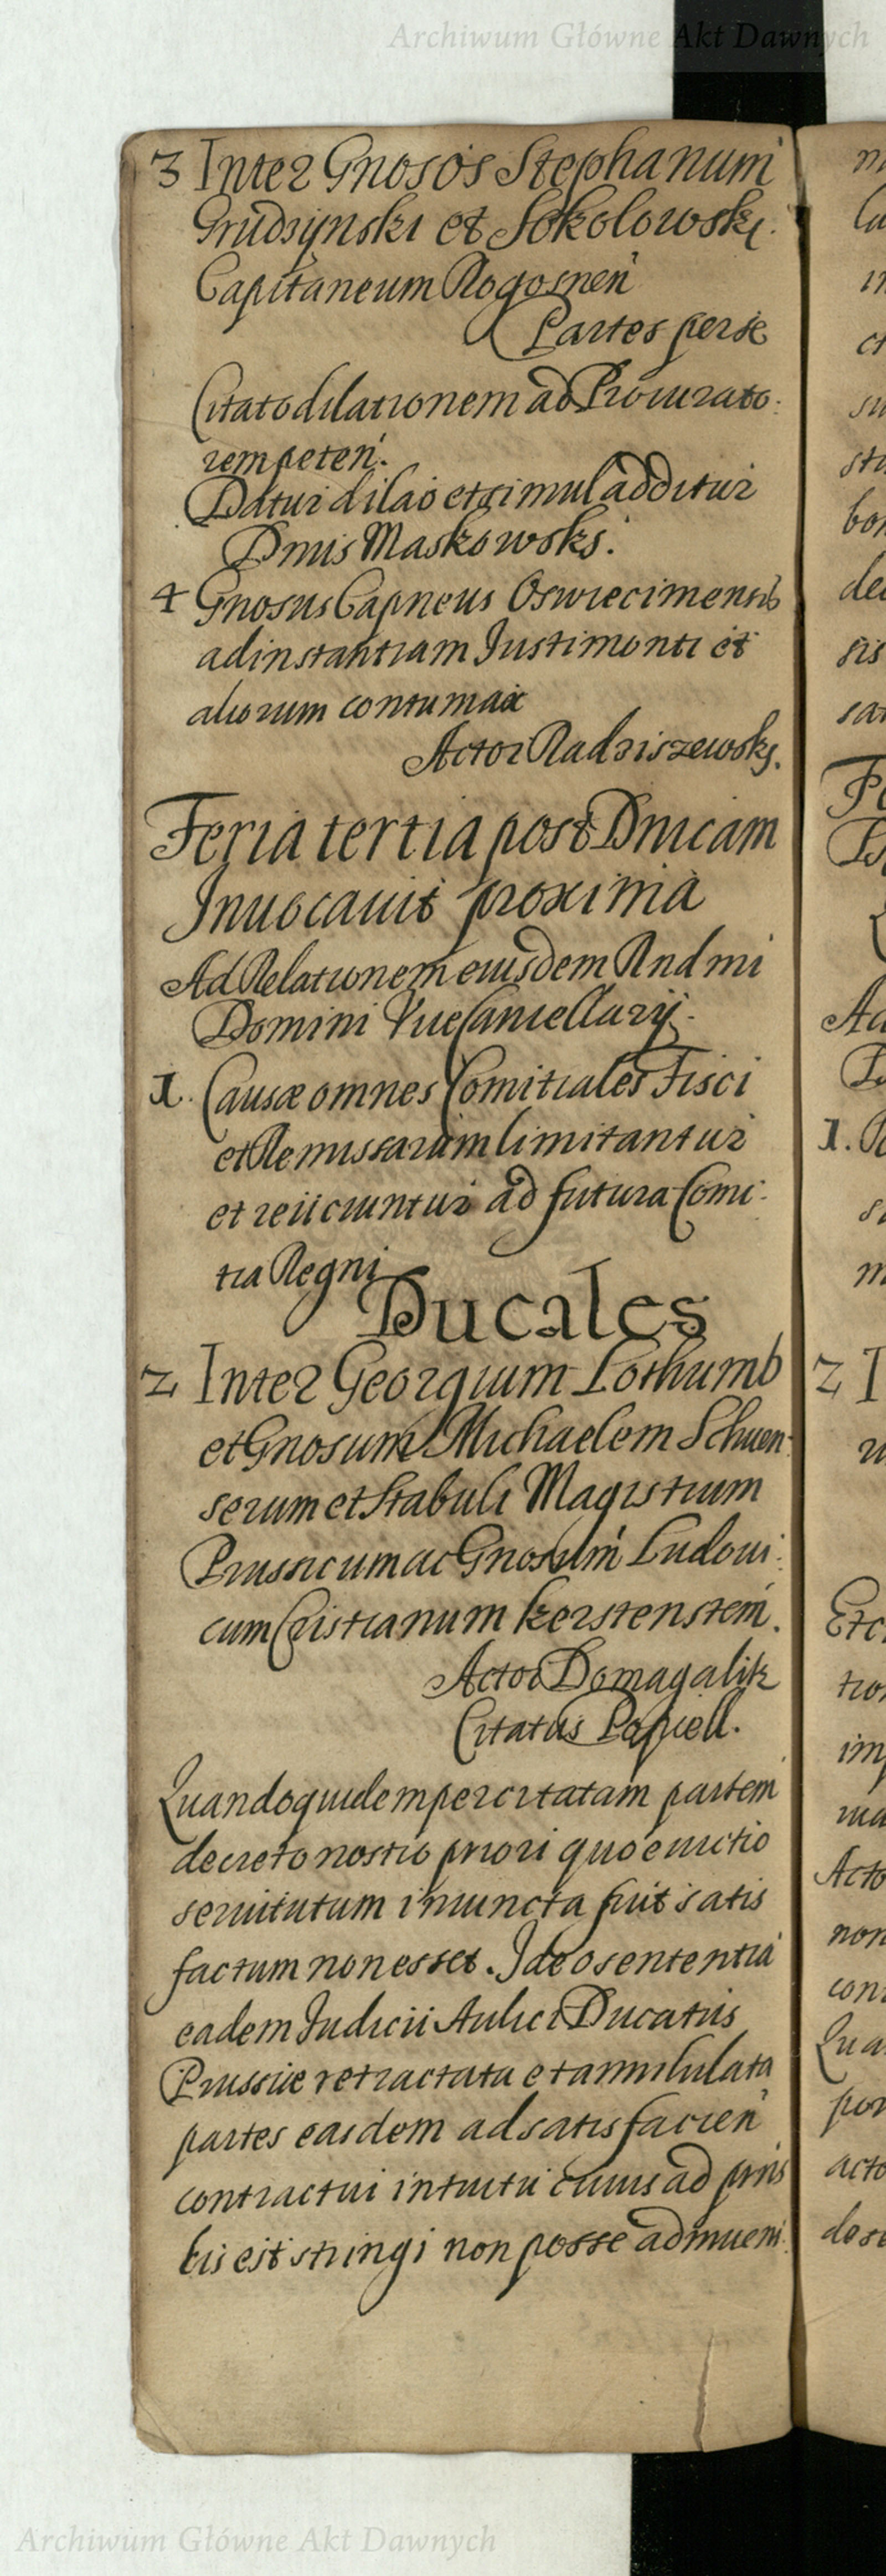 Archiwum Główne Akt Dawnych
3 Inter Gnosos Stephanum
Grudzynski et Sokolowski
Capitaneum Rogosnen
Partes per se
Citato dilationem ad Procurato:
rem peten.
Datur dilao et simul additur
Dnus Maskowski.
4 Gnosus Capneus Oswiecimensis
ad instantiam Justimonti et
aliorum contumax
Actor Radziszewski.
Feria tertia post Dnicam
Inuocauit proxima
Ad Relationem eiusdem Rndmi
Domini Vicecancellarij.
1. Causæ omnes Comitiales Fisci
et Remissarum limitantur
et reiiciuntur ad futura Comi:
tia Regni
Ducales
2 Inter Georgium Lothumb
et Gnosum Michaelem Schuen
serum et Stabuli Magistrum
Prussicum ac Gnosum Ludoui:
cum Cristianum Kerstenstein.
Actor Domagalik
Citatus Papiell.
Quandoquidem per citatam partem
decreto nostro priori quo euictio
seruitutum iniuncta fuit satis
factum non esset. Ideo sententia
eadem Judicii Aulici Ducatus
Prussiæ retractata et annihilata
partes easdem ad satisfacien
contractui intuitu cuius ad
est stringi non posse admueni:
m
in
ct
su
bon
de
sis
san
Ad
1. R
m
2 I
Etc
im
Acto
non
con
Qua
por
acto
Archiwum Główne Akt Dawnych